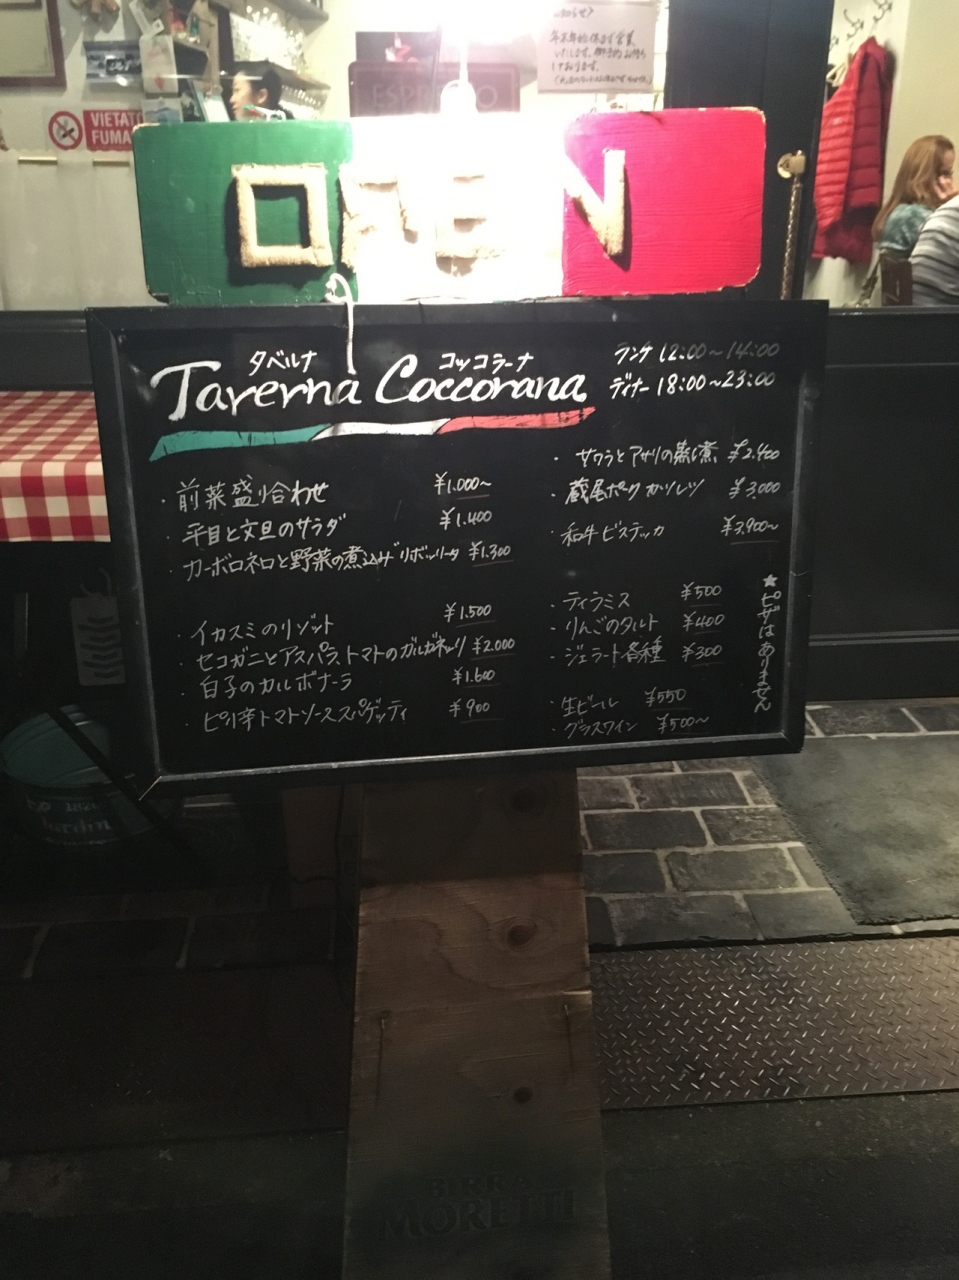 お知らせ>
年末年始休まず営業
いたします。御予約お待ち
しております。
ESPRESSO
VIETATO
FUMARE
OPEN
タベルナ コッコラーナ
Taverna Coccorana
ランチ 12:00～14:00
ディナー 18:00～23:00
・前菜盛り合わせ ¥1.000~
・平目と文旦のサラダ ¥1.400
・カーボロネロと野菜の煮込み リボッリータ ¥1.300
・イカスミのリゾット ¥1.500
・セコガニとアスパラ、トマトのガルガネッリ ¥2.000
・白子のカルボナーラ ¥1.600
・ピリ辛トマトソーススパゲッティ ¥900
・サワラとアサリの蒸し煮 ¥2.400
・蔵尾ポーク カツレツ ¥3,000
・和牛ビステッカ ¥3,900~
・ティラミス ¥500
・りんごのタルト ¥400
・ジェラート各種 ¥300
・生ビール ¥550
・グラスワイン ¥500~
★ピザはありません
BIRRA
MORETTI